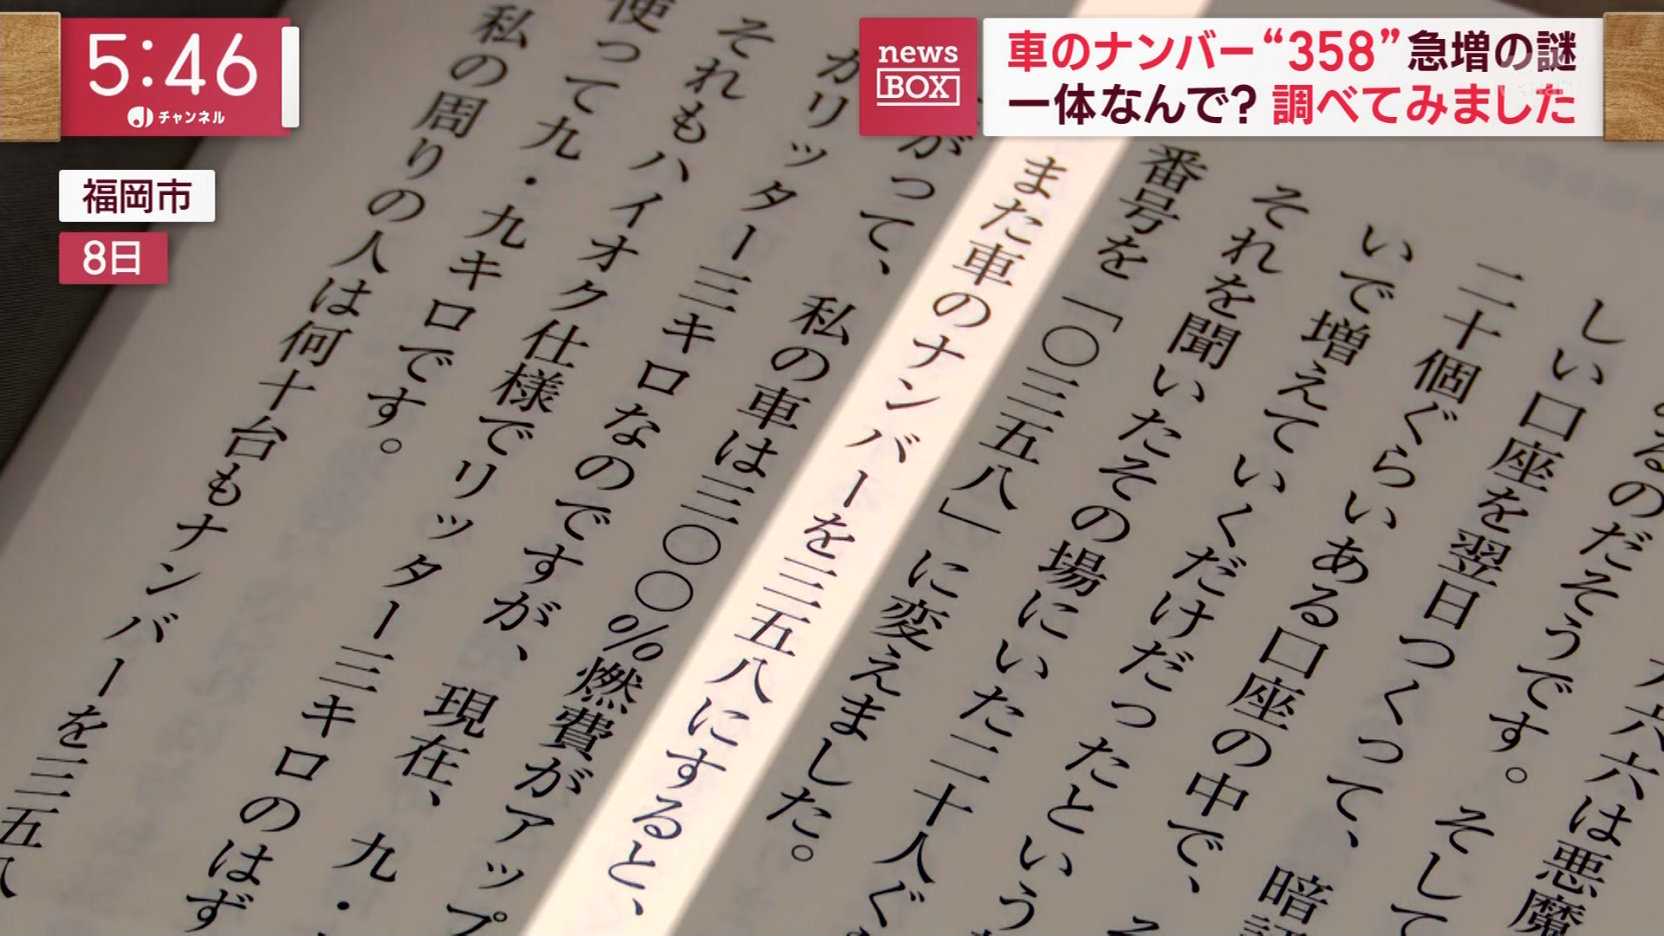 5:46
チャンネル
福岡市
8日
news
BOX
車のナンバー“358”急増の謎
一体なんで?調べてみました
六六は悪魔
るのだそうです。そして
しい口座を翌日つくって、暗
二十個ぐらいある口座の中で、そ
いで増えていくだけだったという
それを聞いたその場にいた二十人ぐ
番号を「〇三五八」に変えました。
また車のナンバーを三五八にすると、
がって、私の車は三〇〇%燃費がアップ
がリッター三キロなのですが、現在、九・
それもハイオク仕様でリッター三キロのはず
使って九・九キロです。
私の周りの人は何十台もナンバーを三五八